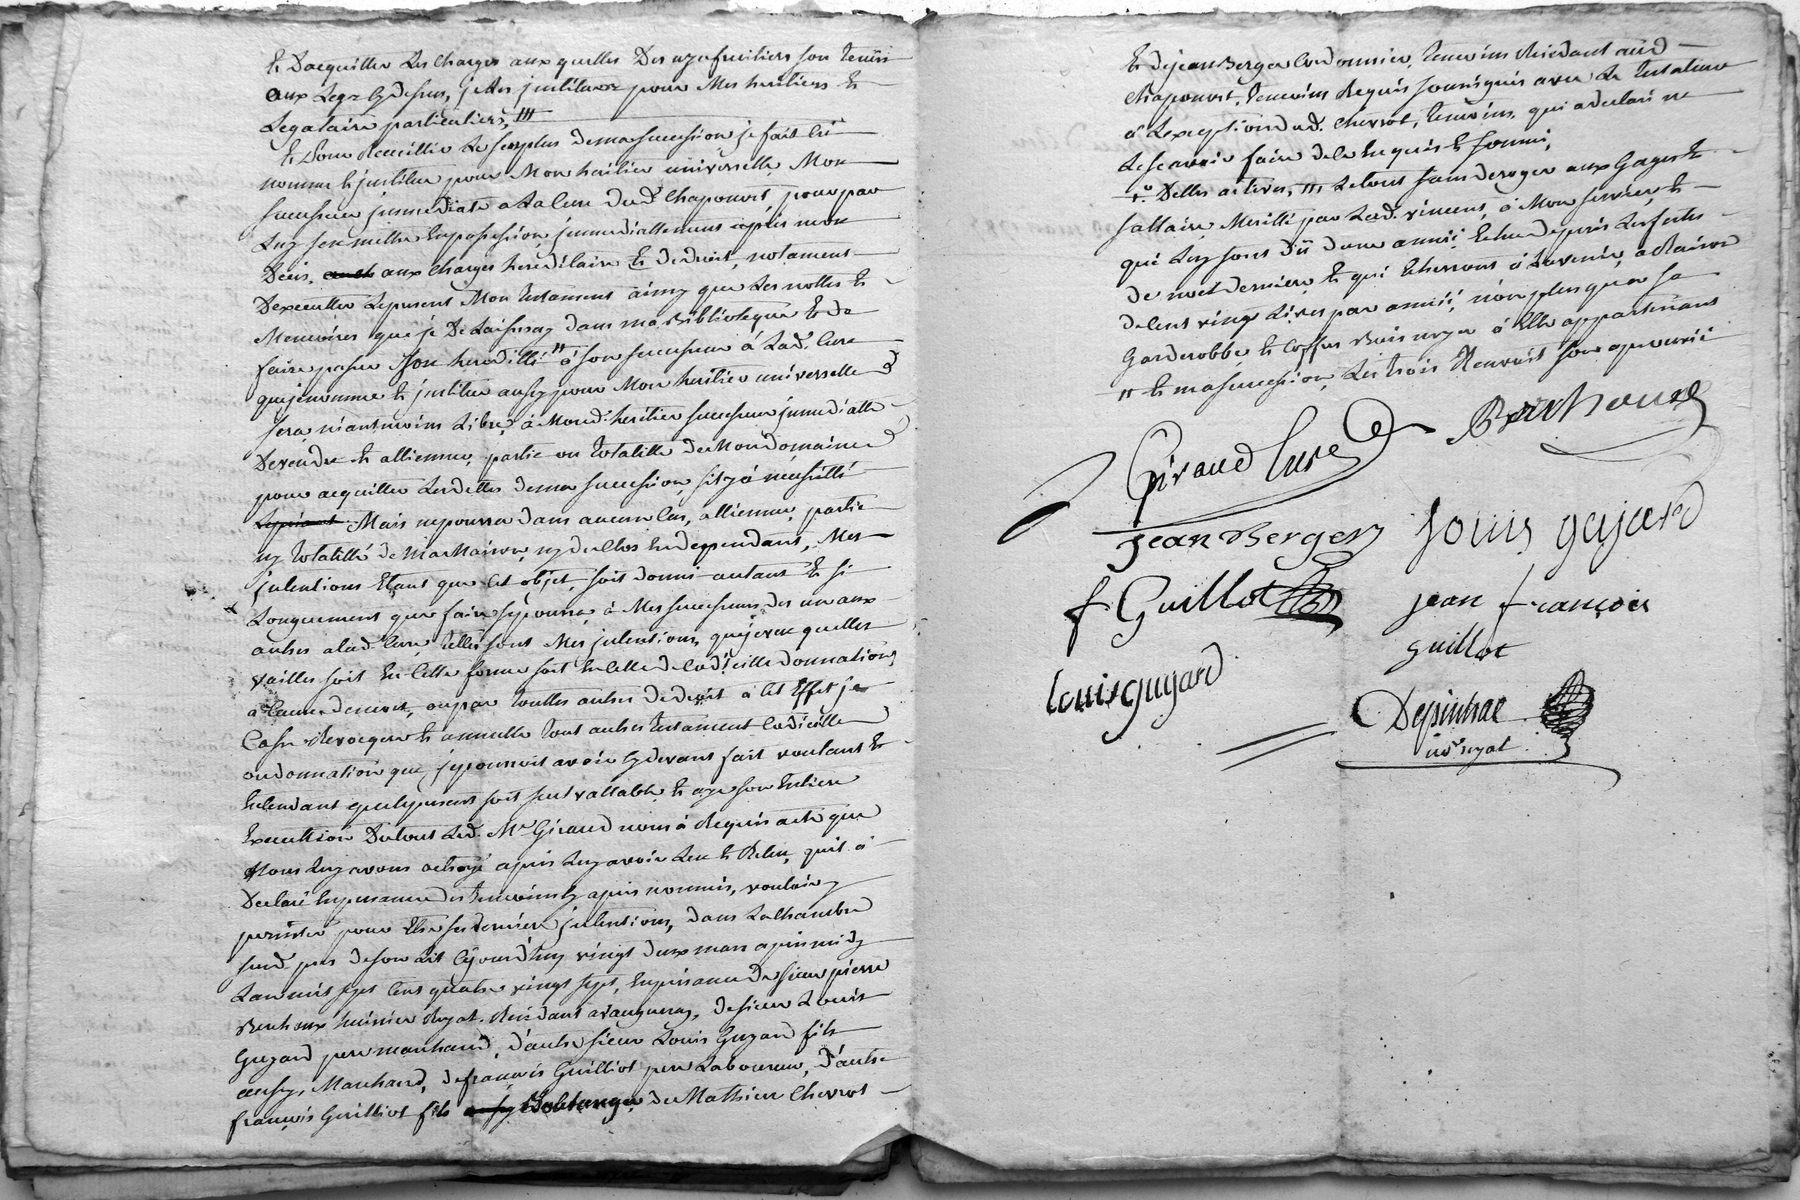 Et Dacquitter Les charges aux quelles Des uzufruitiers son tenus
aux Legz cy dessus, je Les jnstitue pour Mes heritiers Et
Legataire particuliers, 111
Et Pour Recuillir Le surplus de ma succession je fait Cré
nomme Et jnstitue pour Mon heritier universelle Mon
successeur jmmediate a La Cure dud. Chaponost pour par
Luy se mettre En possession jmmediattement après mon
Decés, aux charges hereditaire Et de droit, notament
D'executter Le present Mon testament ainsy que Les nottes Et
Memoires que je De Laisseray dans ma Biblioteque Et de
faire passer Mon heredité " à son successeur á Lad. Cure
que je nomme Et jnstitue aussy pour Mon heritier universelle
sera néantmoins Libre à Mond. heritier successeur jmmediatte
De vendre Et allienner partie ou totalitté de Mon domaine
pour acquitter Les dettes de ma succession s'il y á néssessité
Mais ne pourra dans aucun Cas, allienner partie
ny totalitté de Ma Maison, ny du Clos En dependant, Mes
jntentions Etant que Cet objet soit donné autant Et si
Longuement que faire se pourra á Mes successeurs des uns aux
autres a lad. Cure telles sont Mes jntentions que je veux quelles
vaillet soit En Cette forme soit En Celle de Codicille donnations
à Cause de mort, ou par touttes autres de droit à Cet Effet je
Casse Revocque Et annulle tout autres testament Codicille
ou donnation que j'y pourroit avoir cy devant fait voulant Et
Entendant que le present soit seul vallable Et aye son Entiere
Execution Du tout Led. Mre Giraud nous á Requis acte que
Nous luy avons octroyé après Luy avoir Leu Et Releu, quil á
Declaré En presence des temoins cy après nommés, vouloir y
persister pour Etre ses dernieres jntentions, dans La Chambre
sud. près de son Lit Cejourd'huy vingt deux mars après midy
L'an mil sept Cent quatre vingt sept, En presence De sieur pierre
Berthoux huissier Royal Residant a vaugneray, de sieur Louis
Guyard pere marchand, d'autre sieur Louis Guyard fils
aussy, Marchand, de françois Guilliot pere Laboureur, d'autre
françois Guilliot fils Boulanger de Mathieu Chervot
Et de jean Berger Cordonnier, temoins Residant aud
Chaponost, temoins Requis soussignés avec Le testateur
á Lexception dud. Chervot, temoins, qui a declaré ne
Le scavoir faire de ce Enquis Et sommé,
Dettes actives, 111 Le tout sans deroger aux Gages Et
sallaire Merité par Lad. vincent á Mon service Et
qui Luy sont dû d'une année Echue depuis Les fettes
de noel derniere Et qui Echerront á L'avenir, a Raison
de Cent vingt Livres par année, non plus qua sa
Garderobbe Et Coffre Bois noyer á Elle appartenant
" Et ma succession, Les trois Renvoit son aprouvé
Giraud Curé Berthoux
jean Berger Louis guyard
f Guillot jean françois
guillot
louis guyard
Depinhac
no.re royal